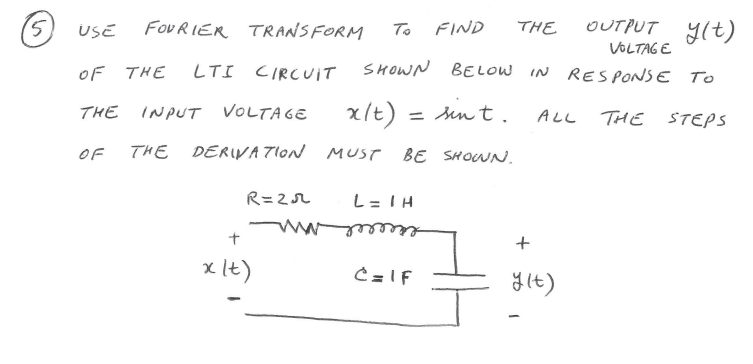 5 USE FOURIER TRANSFORM TO FIND THE OUTPUT y(t)
VOLTAGE
OF THE LTI CIRCUIT SHOWN BELOW IN RESPONSE TO
THE INPUT VOLTAGE x(t) = sin t. ALL THE STEPS
OF THE DERIVATION MUST BE SHOWN.
R=2Ω L=1H
+ +
x(t) C=1F y(t)
- -